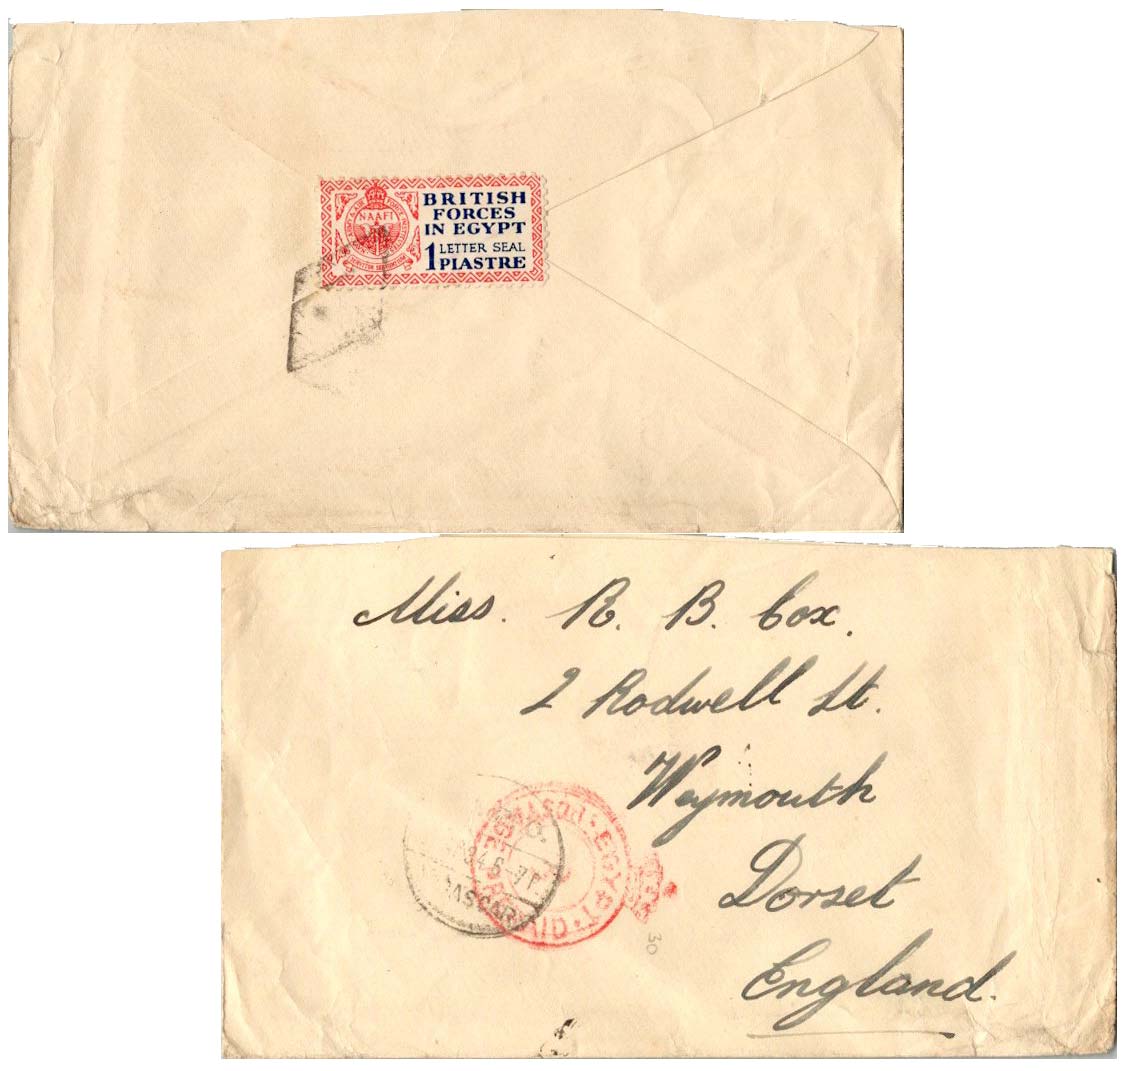 NAAFI
BRITISH
FORCES
IN EGYPT
LETTER SEAL
1 PIASTRE
Miss. R. B. Cox.
2 Rodwell St.
Weymouth
Dorset
England.
POSTAGE EGYPT PAID
30